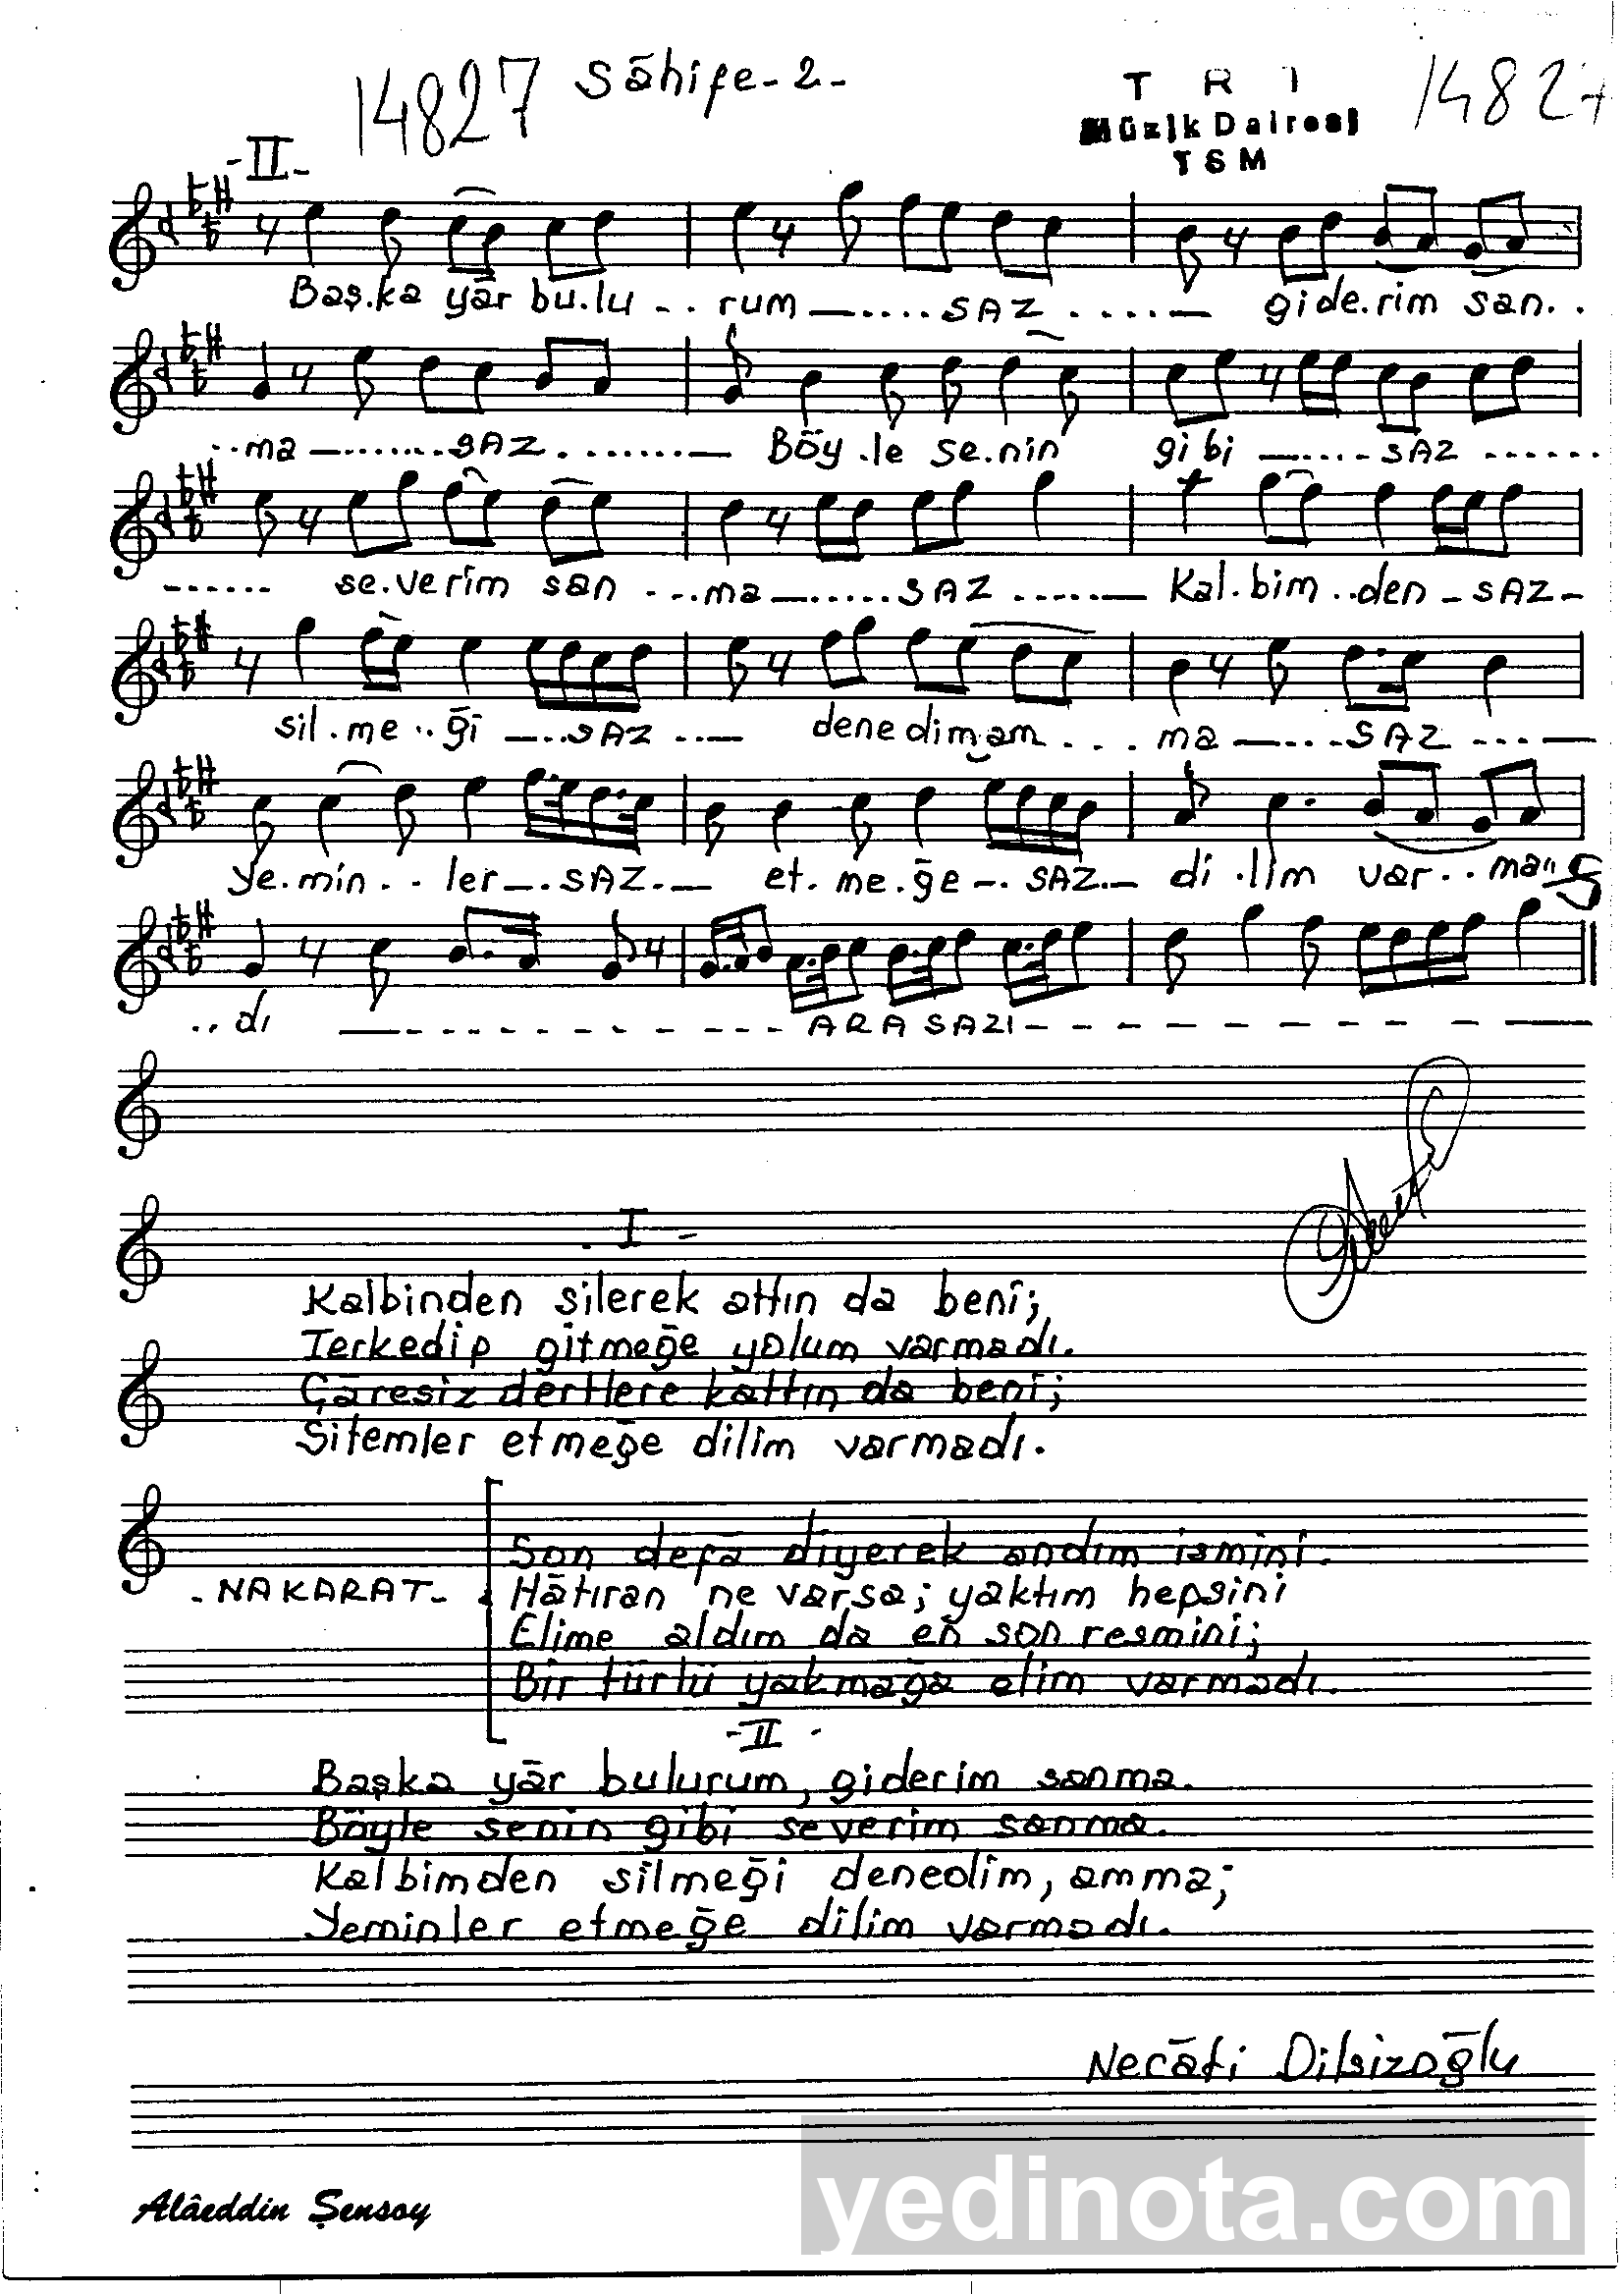 14827 Sâhife-2-
T R T 14827
Müzik Dairesi
TSM
-II-
Baş.ka yâr bu.lu -.. rum —.....SAZ.....— gide.rim san..
..ma —.......SAZ.......— Böy.le se.nin gibi —.....SAZ ......
------ se.verim san ...ma —.....SAZ .....— Kal.bim..den - SAZ -
sil.me..ği —...SAZ ...— denedim am.... ma —....SAZ ....—
Ye.min... ler —.SAZ.— et.me.ğe -. SAZ.— di.lim var..ma..
..dı —----------- ARA SAZI ----------—
. I -
Kalbinden silerek attın da beni;
Terkedip gitmeğe yolum varmadı.
Çâresiz dertlere kattın da beni;
Sitemler etmeğe dilim varmadı.
Son defa diyerek andım ismini.
-NAKARAT- Hâtıran ne varsa; yaktım hepsini
Elime aldım da en son resmini;
Bir türlü yakmağa elim varmadı.
-II-
Başka yâr bulurum, giderim sanma.
Böyle senin gibi severim sanma.
Kalbimden silmeği denedim, amma;
Yeminler etmeğe dilim varmadı.
Necâti Dilsizoğlu
Alâeddin Şensoy
yedinota.com